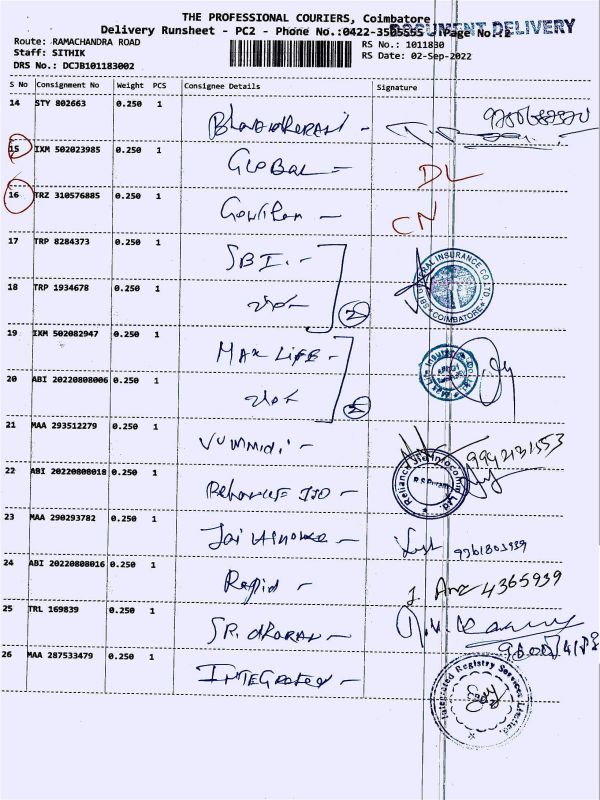 THE PROFESSIONAL COURIERS, Coimbatore
Delivery Runsheet - PC2 - Phone No.:0422-3505555 Page No.:2
DOCUMENT DELIVERY
Route: RAMACHANDRA ROAD
RS No.: 1011830
Staff: SITHIK
RS Date: 02-Sep-2022
DRS No.: DCJB101183002
S No Consignment No Weight PCS Consignee Details Signature
14 STY 802663 0.250 1
15 IXM 502023985 0.250 1 GLOBAL - DL
16 TRZ 310576885 0.250 1 CN
17 TRP 8284373 0.250 1 SBI. -
18 TRP 1934678 0.250 1 2
SBI GENERAL INSURANCE CO. LTD. COIMBATORE
19 IXM 502082947 0.250 1 MAX LIFE -
20 ABI 20220808006 0.250 1 2
Max Life Insurance Co. Ltd.
21 MAA 293512279 0.250 1 VUMMIDI -
22 ABI 20220808018 0.250 1 Reliance JIO -
Reliance Jio Infocomm Ltd. R S Puram
23 MAA 290293782 0.250 1
24 ABI 20220808016 0.250 1 Rapid - 4365939
25 TRL 169839 0.250 1
26 MAA 287533479 0.250 1 INTEGRATED -
Integrated Registry Services Limited.